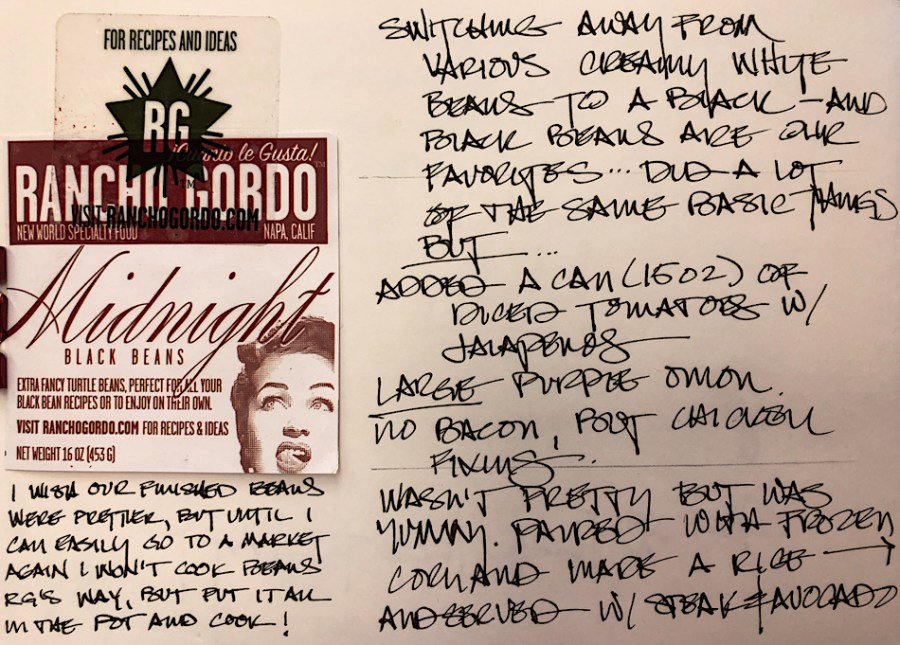 FOR RECIPES AND IDEAS
RG
¡Cuanto le Gusta!
RANCHO GORDO™
VISIT RANCHOGORDO.COM
NEW WORLD SPECIALTY FOOD NAPA, CALIF
Midnight
BLACK BEANS
EXTRA FANCY TURTLE BEANS, PERFECT FOR ALL YOUR
BLACK BEAN RECIPES OR TO ENJOY ON THEIR OWN.
VISIT RANCHOGORDO.COM FOR RECIPES & IDEAS
NET WEIGHT 16 OZ (453 G)
I WISH OUR FINISHED BEANS
WERE PRETTIER, BUT UNTIL I
CAN EASILY GO TO A MARKET
AGAIN I WON'T COOK BEANS
RG'S WAY, BUT PUT IT ALL
IN THE POT AND COOK!
SWITCHING AWAY FROM
VARIOUS CREAMY WHITE
BEANS TO A BLACK - AND
BLACK BEANS ARE OUR
FAVORITES... DID A LOT
OF THE SAME BASIC THINGS
BUT ...
ADDED A CAN (15 OZ) OF
DICED TOMATOES W/
JALAPENOS
LARGE PURPLE ONION.
NO BACON, BUT CHICKEN
FIXINS.
WASN'T PRETTY BUT WAS
YUMMY. PAIRED WITH A FROZEN
CORN AND MADE A RICE →
AND SERVED W/ STEAK & AVOCADO